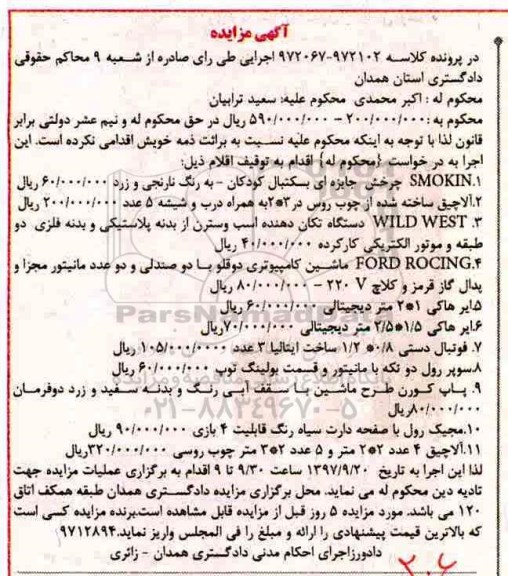 آگهی مزایده
در پرونده کلاسه ۹۷۲۱۰۲-۹۷۲۰۶۷ اجرایی طی رای صادره از شعبه ۹ محاکم حقوقی
دادگستری استان همدان
محکوم له : اکبر محمدی محکوم علیه: سعید ترابیان
محکوم به :۲۰۰/۰۰۰/۰۰۰ – ۵۹۰/۰۰۰/۰۰۰ ریال در حق محکوم له و نیم عشر دولتی برابر
قانون لذا با توجه به اینکه محکوم علیه نسبت به برائت ذمه خویش اقدامی نکرده است. این
اجرا به در خواست {محکوم له} اقدام به توقیف اقلام ذیل:
۱.SMOKIN چرخش جایزه ای بسکتبال کودکان - به رنگ نارنجی و زرد ۶۰/۰۰۰/۰۰۰ ریال
۲.آلاچیق ساخته شده از چوب روس در۳*۲به همراه درب و شیشه ۵ عدد ۲۰۰/۰۰۰/۰۰۰ ریال
۳. WILD WEST دستگاه تکان دهنده اسب وسترن از بدنه پلاستیکی و بدنه فلزی دو
طبقه و موتور الکتریکی کارکرده ۴۰/۰۰۰/۰۰۰ ریال
۴.FORD ROCING ماشین کامپیوتری دوقلو با دو صندلی و دو عدد مانیتور مجزا و
پدال گاز قرمز و کلاچ ۲۲۰ V – ۸۰/۰۰۰/۰۰۰ ریال
۵.ایر هاکی ۱*۲ متر دیجیتالی ۶۰/۰۰۰/۰۰۰ ریال
۶.ایر هاکی ۱/۵*۲/۵ متر دیجیتالی ۷۰/۰۰۰/۰۰۰ریال
۷. فوتبال دستی ۰/۸* ۱/۲ ساخت ایتالیا ۳ عدد ۱۰۵/۰۰۰/۰۰۰ ریال
۸.سوپر رول دو تکه با مانیتور و قسمت بولینگ توپ ۶۰/۰۰۰/۰۰۰ ریال
۹. پاپ کورن طرح ماشین با سقف آبی رنگ و بدنه سفید و زرد دوفرمان
۸۰/۰۰۰/۰۰۰ریال
۱۰.مجیک رول با صفحه دارت سیاه رنگ قابلیت ۴ بازی ۹۰/۰۰۰/۰۰۰ ریال
۱۱.آلاچیق ۴ عدد ۲*۲ متر و ۵ عدد ۲*۳ متر چوب روسی ۳۲۰/۰۰۰/۰۰۰ریال
لذا این اجرا به تاریخ ۱۳۹۷/۹/۲۰ ساعت ۹/۳۰ تا ۹ اقدام به برگزاری عملیات مزایده جهت
تادیه دین محکوم له می نماید. محل برگزاری مزایده دادگستری همدان طبقه همکف اتاق
۱۲۰ می باشد. مورد مزایده ۵ روز قبل از مزایده قابل مشاهده است.برنده مزایده کسی است
که بالاترین قیمت پیشنهادی را ارائه و مبلغ را فی المجلس واریز نماید.۹۷۱۲۸۹۴
دادورزاجرای احکام مدنی دادگستری همدان - زائری
ParsNamadData
۰۲۱-۸۸۳۴۹۶۷۰-۵